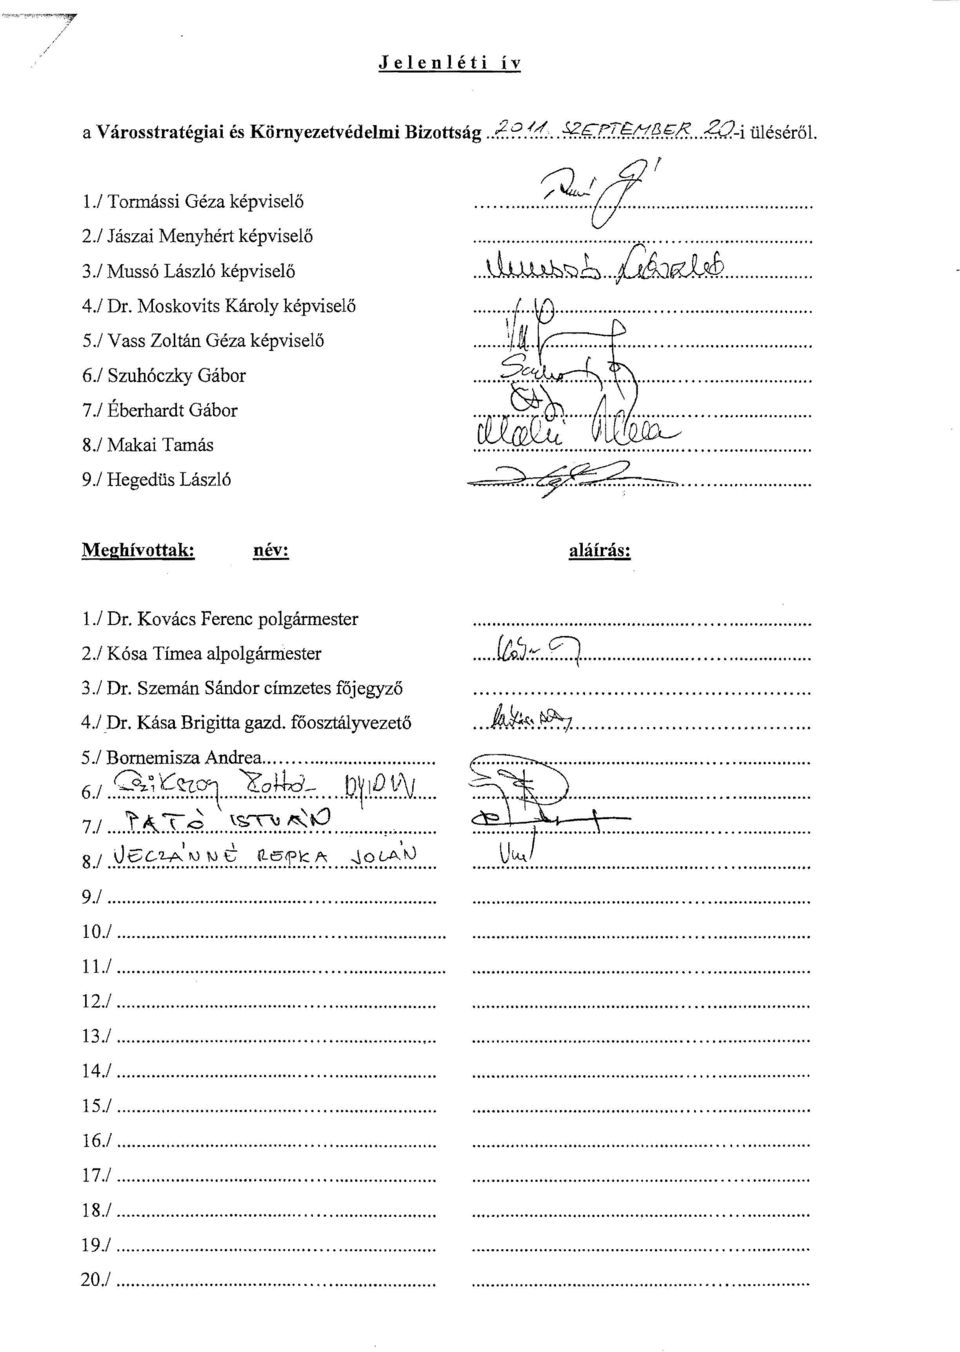 Jelenléti ív
a Városstratégiai és Környezetvédelmi Bizottság ..2011. SZEPTEMBER 20.-i üléséről.
1./ Tormássi Géza képviselő
2./ Jászai Menyhért képviselő
3./ Mussó László képviselő Mussó László
4./ Dr. Moskovits Károly képviselő
5./ Vass Zoltán Géza képviselő
6./ Szuhóczky Gábor
7./ Éberhardt Gábor
8./ Makai Tamás
9./ Hegedüs László
Meghívottak: név: aláírás:
1./ Dr. Kovács Ferenc polgármester
2./ Kósa Tímea alpolgármester
3./ Dr. Szemán Sándor címzetes főjegyző
4./ Dr. Kása Brigitta gazd. főosztályvezető
5./ Bornemisza Andrea
6./
7./ PATÓ ISTVÁN
8./ VECZÁNNÉ REPKA JOLÁN
9./
10./
11./
12./
13./
14./
15./
16./
17./
18./
19./
20./